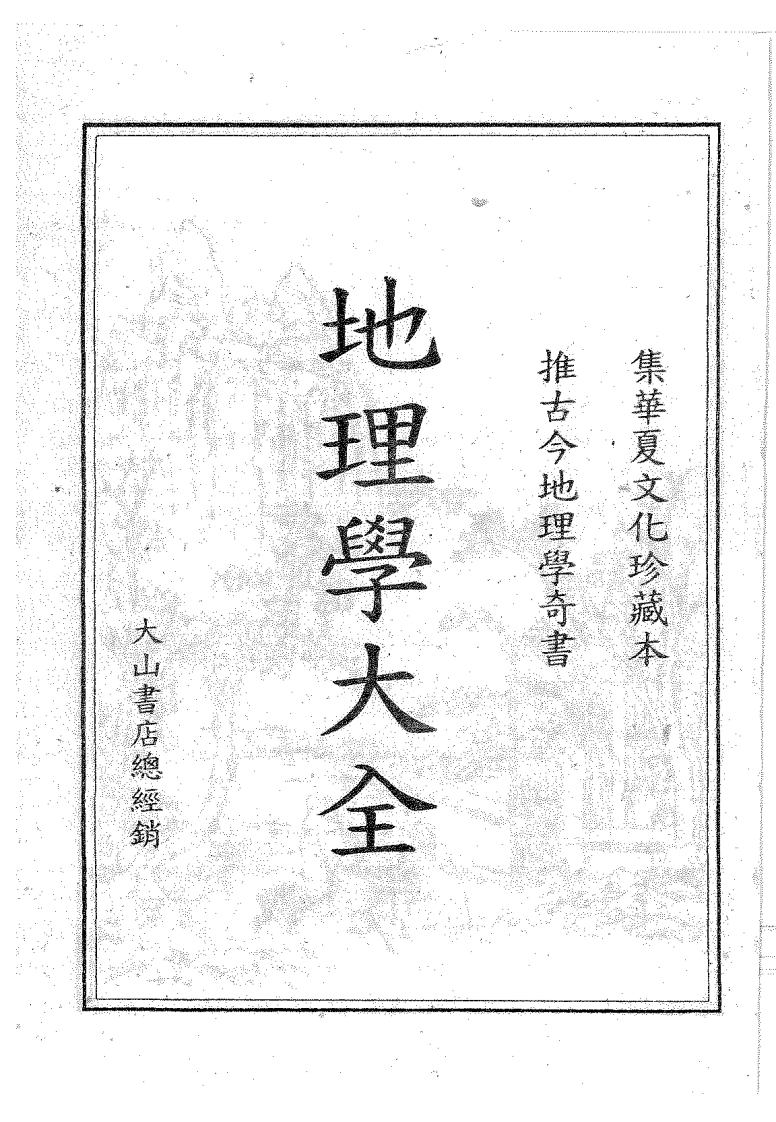 集華夏文化珍藏本
推古今地理學奇書
地理學大全
大山書店總經銷